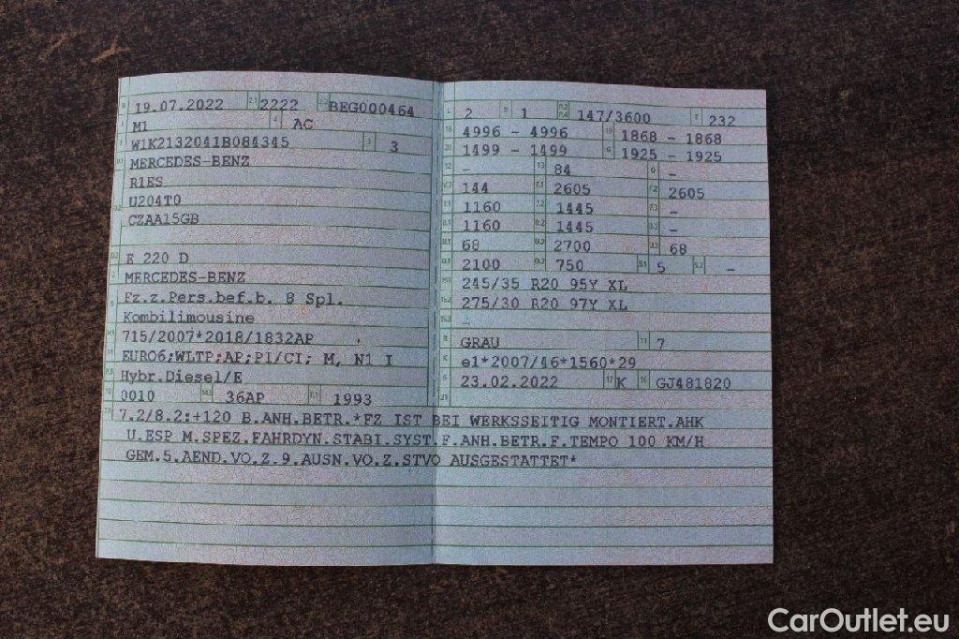 19.07.2022 2222 BEG000464
M1 AC
W1K2132041B084345 3
MERCEDES-BENZ
R1ES
U204T0
CZAA15GB
E 220 D
MERCEDES-BENZ
Fz.z.Pers.bef.b. 8 Spl.
Kombilimousine
715/2007*2018/1832AP
EURO6;WLTP;AP;PI/CI; M, N1 I
Hybr.Diesel/E
0010 36AP 1993
2 1 147/3600 232
4996 - 4996 1868 - 1868
1499 - 1499 1925 - 1925
- 84 -
144 2605 2605
1160 1445 -
1160 1445 -
68 2700 68
2100 750 5 -
245/35 R20 95Y XL
275/30 R20 97Y XL
-
GRAU 7
e1*2007/46*1560*29
23.02.2022 K GJ481820
7.2/8.2:+120 B.ANH.BETR.*FZ IST BEI WERKSSEITIG MONTIERT.AHK
U.ESP M.SPEZ.FAHRDYN.STABI.SYST.F.ANH.BETR.F.TEMPO 100 KM/H
GEM.5.AEND.VO.Z.9.AUSN.VO.Z.STVO AUSGESTATTET*
CarOutlet.eu